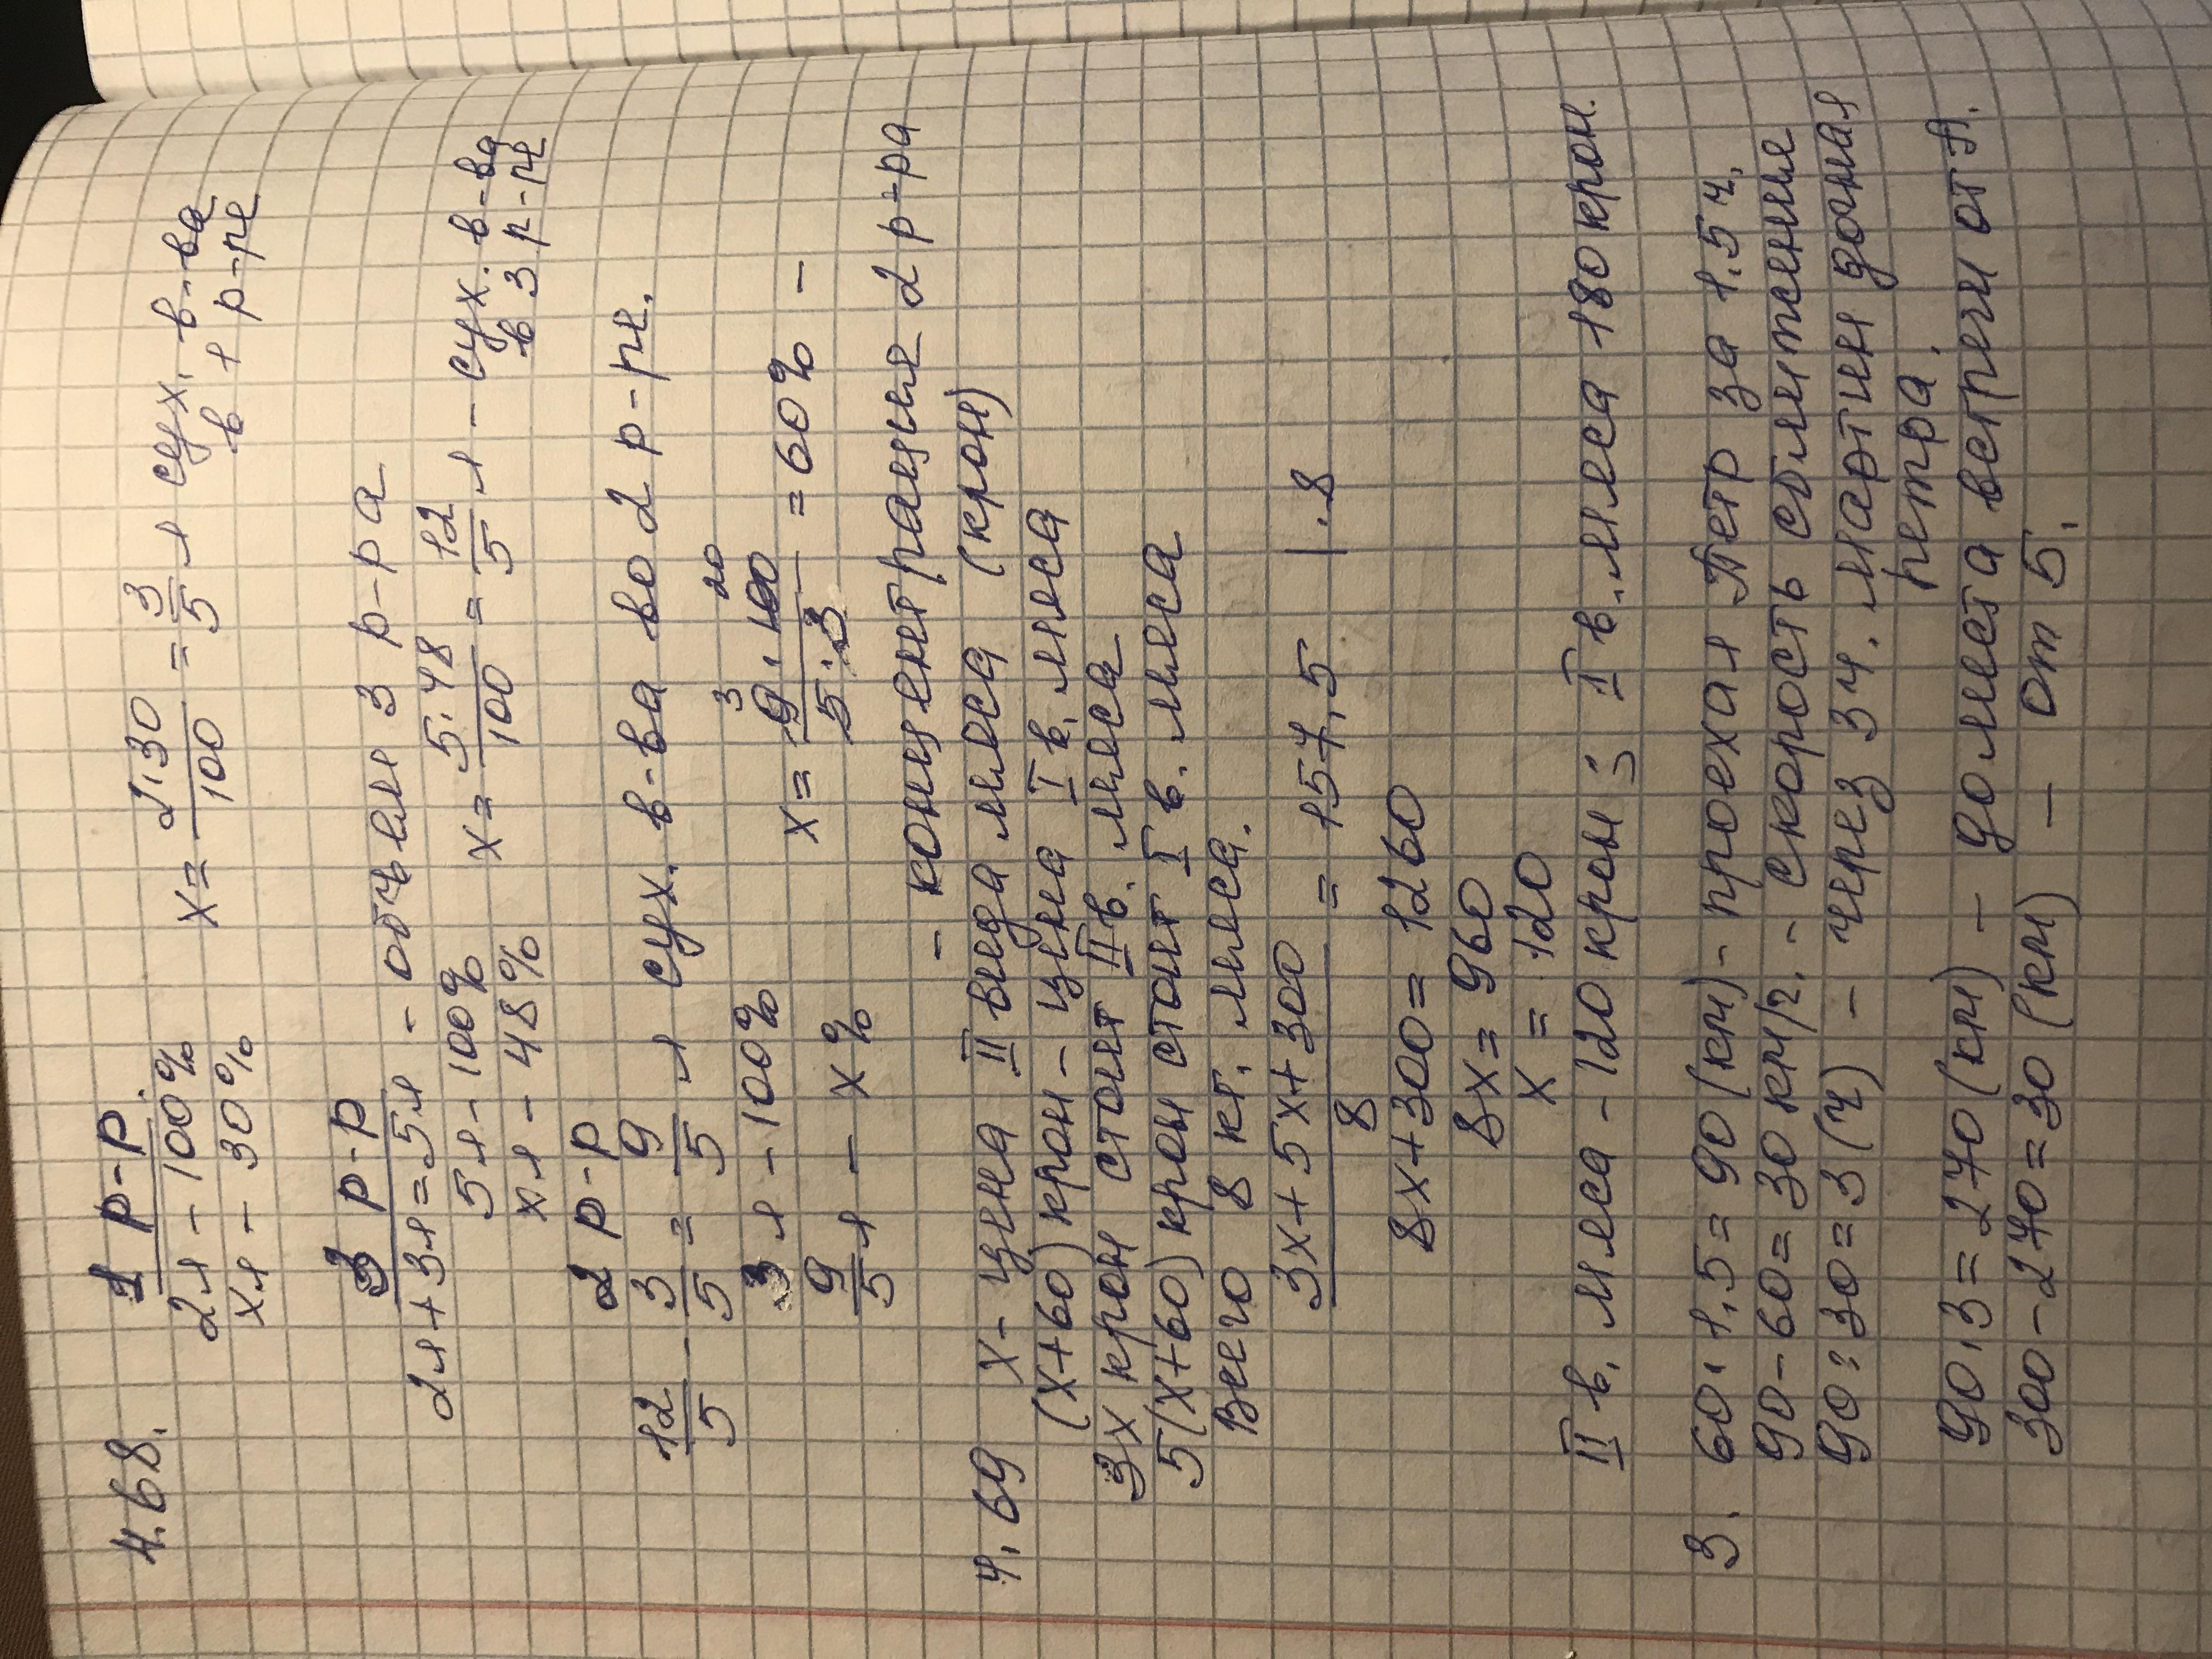 4.68. 1 р-р.
2л - 100% x = 2·30/100 = 3/5 л сух. в-ва
хл - 30% в 1 р-ре
3 р-р
2л+3л=5л - объем 3 р-ра
5л - 100%
хл - 48% x = 5·48/100 = 12/5 л - сух. в-ва в 3 р-ре
2 р-р
12/5 - 3/5 = 9/5 л сух. в-ва во 2 р-ре.
3л - 100%
9/5 л - х% x = 9·100/5·3 = 60% -
3 20
- концентрация 2 р-ра
4.69 х - цена II вида мяса (крон)
(х+60) крон - цена I в. мяса
3х крон стоит II в. мяса
5(х+60) крон стоит I в. мяса
Всего 8 кг. мяса.
3х+5х+300/8 = 157,5 |·8
8х+300=1260
8х=960
х=120
II в. мяса - 120 крон; I в. мяса 180 крон.
3. 60·1,5=90(км) - проехал Петр за 1.5 ч.
90-60=30 км/2. - скорость сближения
90:30=3(ч) - через 3 ч. Мартин догнал
Петра.
90·3=270(км) - до места встречи от А.
300-270=30(км) — от Б.